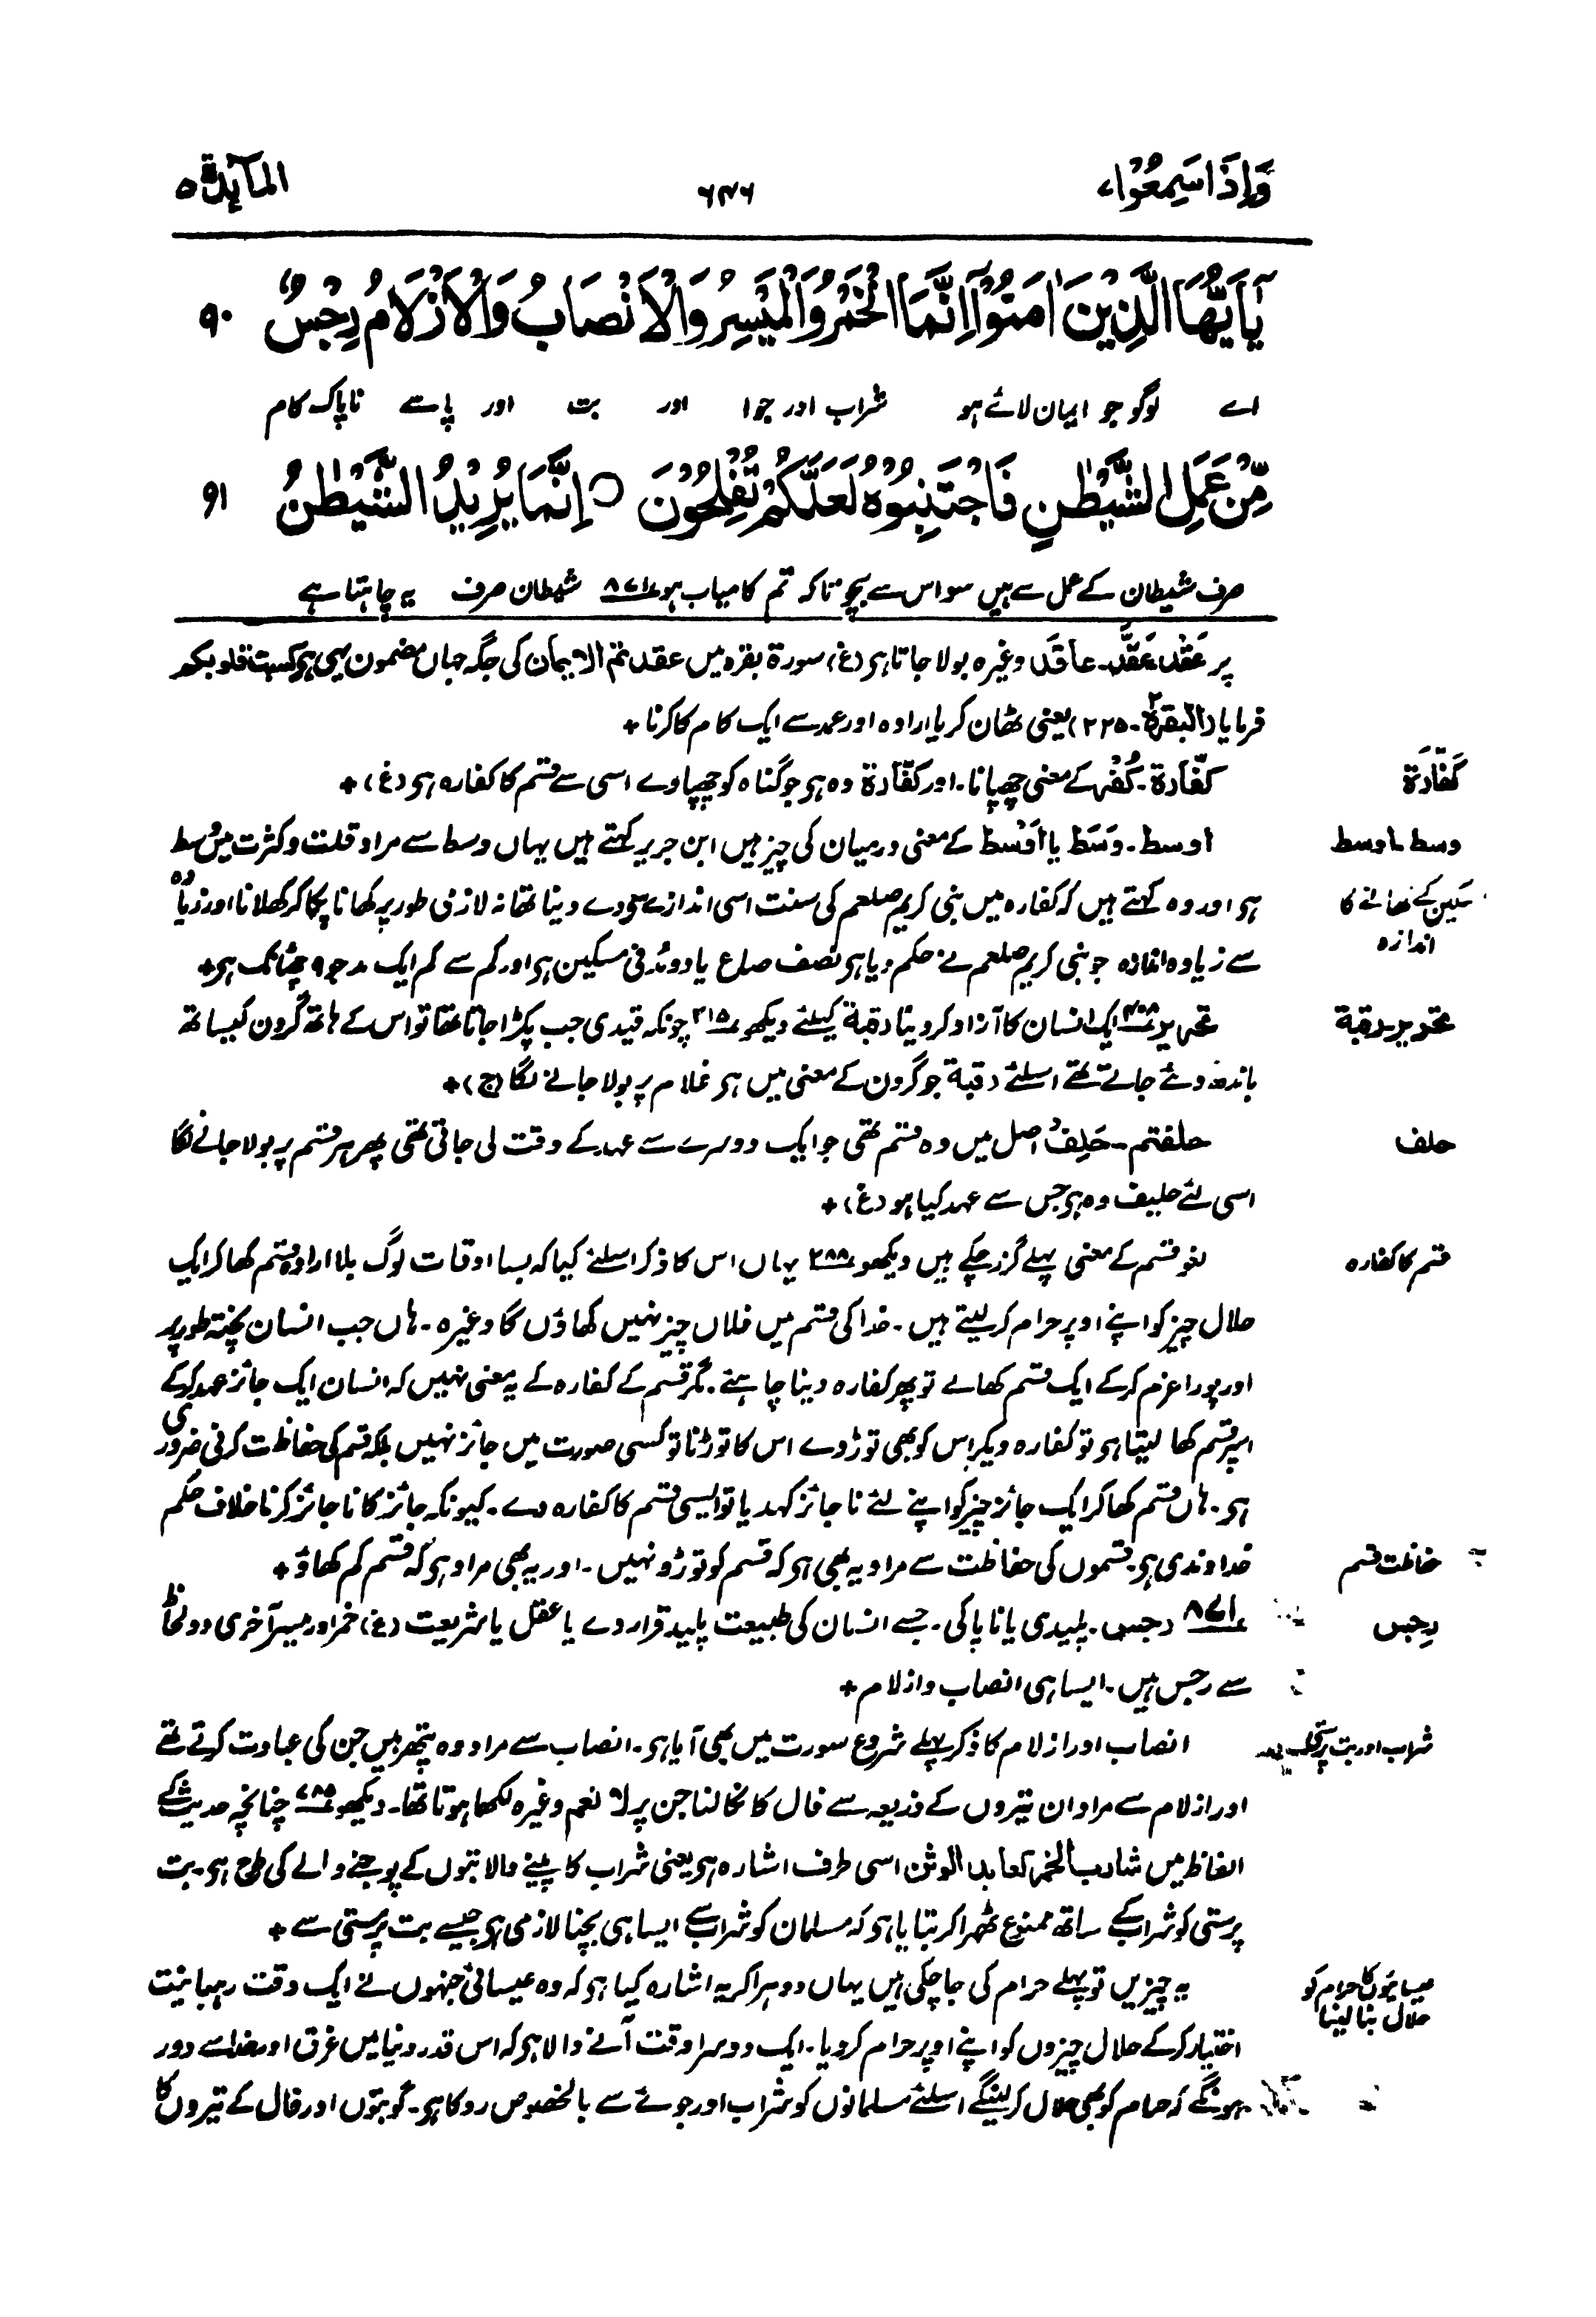 وَاِذَا سَمِعُوْا ۷
۶۴۶
المآئدۃ ۵
يٰۤاَيُّهَا الَّذِيْنَ اٰمَنُوْۤا اِنَّمَا الْخَمْرُ وَالْمَيْسِرُ وَالْاَنْصَابُ وَالْاَزْلَامُ رِجْسٌ ۹۰
اے لوگو جو ایمان لائے ہو شراب اور جوا اور بت اور پانسے ناپاک کام
مِّنْ عَمَلِ الشَّيْطٰنِ فَاجْتَنِبُوْهُ لَعَلَّكُمْ تُفْلِحُوْنَ ○ اِنَّمَا يُرِيْدُ الشَّيْطٰنُ ۹۱
صرف شیطان کے عمل سے ہیں سو اس سے بچو تاکہ تم کامیاب ہو ۸۷۱ شیطان صرف یہ چاہتا ہے
پر عَقْد عَقَّدَ۔ عاقَدَ وغیرہ بولا جاتا ہو (غ) سورۃ بقرہ میں عقدتم الایمان کی جگہ جہاں مضمون یہی ہو کسبت قلوبکم
فرمایا (البقرۃ۲۔۲۲۵) یعنی ٹھان کر یا ارادہ اور عمد سے ایک کام کا کرنا +
کَفَّارَۃ
کفّارۃ۔ کُفْر کے معنی چھپانا۔ اور کفّارۃ وہ ہو جو گناہ کو چھپاوے اسی سے قسم کا کفارہ ہو (غ) +
وسط۔ اوسط
اوسط۔ وَسَط یا اَوْسَط کے معنی درمیان کی چیز ہیں ابن جریر کہتے ہیں یہاں وسط سے مراد قلت وکثرت میں وسط
مسکین کے کھانے کا اندازہ
ہو اور وہ کہتے ہیں کہ کفارہ میں نبی کریم صلعم کی سنت اسی اندازے سے دے دینا تھا نہ لازمی طور پر کھانا پکا کر کھلانا اور زیادہ
سے زیادہ اندازہ جو نبی کریم صلعم نے حکم دیا ہو نصف صاع یا دو مُد فی مسکین ہو اور کم سے کم ایک مد جو ۹ چٹانک ہو +
تحریر۔ رقبۃ
تحریر ایک انسان کا آزاد کر دینا رقبۃ کیلئے دیکھو ۲۱۵ چونکہ قیدی جب پکڑا جاتا تھا تو اس کے ہاتھ گردن کیساتھ
باندھ دئے جاتے تھے اسلئے رقبۃ جو گردن کے معنی میں ہو غلام پر بولا جانے لگا (ج) +
حلف
حلفتم۔ حَلِفٌ اصل میں وہ قسم تھی جو ایک دوسرے سے عہد کے وقت لی جاتی تھی پھر ہر قسم پر بولا جانے لگا
اسی لئے حلیف وہ ہو جس سے عہد کیا ہو (غ) +
قسم کا کفارہ
لغو قسم کے معنی پہلے گزر چکے ہیں دیکھو ۲۸۸ یہاں اس کا ذکر اسلئے کیا کہ بسا اوقات لوگ بلا ارادہ قسم کھا کر ایک
حلال چیز کو اپنے اوپر حرام کر لیتے ہیں۔ خدا کی قسم میں فلاں چیز نہیں کھاؤں گا وغیرہ۔ ہاں جب انسان پختہ طور پر
اور پورا عزم کر کے ایک قسم کھالے تو پھر کفارہ دینا چاہئے۔ مگر قسم کے کفارہ کے یہ معنی نہیں کہ انسان ایک جائز عہد کر کے
اسپر قسم کھا لیتا ہو تو کفارہ دیکر اس کو بھی توڑ دے اس کا توڑنا تو کسی صورت میں جائز نہیں بلکہ قسم کی حفاظت کرنی ضروری
ہو۔ ہاں قسم کھا کر ایک جائز چیز کو اپنے لئے ناجائز کہدیا تو ایسی قسم کا کفارہ دے۔ کیونکہ جائز کا ناجائز کرنا خلاف حکم
حفاظت قسم
خداوندی ہو۔ قسموں کی حفاظت سے مراد یہ بھی ہو کہ قسم کو توڑو نہیں۔ اور یہ بھی مراد ہو کہ قسم کم کھاؤ +
رِجس
۸۷۱ رجس۔ پلیدی یا ناپاکی۔ جسے انسان کی طبیعت پلید قرار دے یا عقل یا شریعت (غ) خمر اور میسر آخری دو لحاظ
سے رجس ہیں۔ ایسا ہی انصاب وازلام +
شراب اور بت پرستی
انصاب اور ازلام کا ذکر پہلے شروع سورت میں بھی آیا ہو۔ انصاب سے مراد وہ پتھر ہیں جن کی عبادت کرتے تھے
اور ازلام سے مراد ان تیروں کے ذریعہ سے فال کا نکالنا جن پر لا نعم وغیرہ لکھا ہوتا تھا۔ دیکھو ۷۸۵ چنانچہ حدیث کے
الفاظ میں شارب الخمر کعابد الوثن اسی طرف اشارہ ہو یعنی شراب کا پینے والا بتوں کے پوجنے والے کی طرح ہو۔ بت
پرستی کو شراب کے ساتھ ممنوع ٹھہرا کر بتا یا ہو کہ مسلمان کو شراب سے ایسا ہی بچنا لازمی ہو جیسے بت پرستی سے +
عیسائیوں کا حرام کو حلال بنا لینا
یہ چیزیں تو پہلے حرام کی جا چکی ہیں یہاں دوہرا کر یہ اشارہ کیا ہو کہ وہ عیسائی جنہوں نے ایک وقت رہبانیت
اختیار کر کے حلال چیزوں کو اپنے اوپر حرام کر دیا۔ ایک دوسرا وقت آنے والا ہو کہ اس قدر دنیا میں غرق اور خدا سے دور
ہونگے کہ حرام کو بھی حلال کر لینگے اسلئے مسلمانوں کو شراب اور جوئے سے بالخصوص روکا ہو۔ گو بتوں اور فال کے تیروں کا